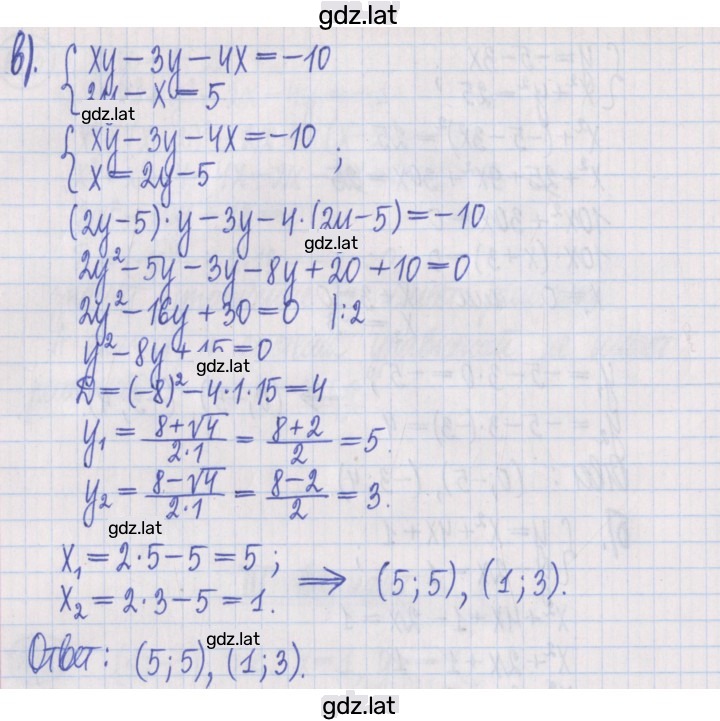 gdz.lat
в). { xy - 3y - 4x = -10
{ 2y - x = 5
gdz.lat
{ xy - 3y - 4x = -10
{ x = 2y - 5 ;
(2y-5)·y - 3y - 4·(2y-5) = -10
gdz.lat
2y² - 5y - 3y - 8y + 20 + 10 = 0
2y² - 16y + 30 = 0 |:2
y² - 8y + 15 = 0
gdz.lat
D = (-8)² - 4·1·15 = 4
y₁ = (8+√4)/(2·1) = (8+2)/2 = 5.
y₂ = (8-√4)/(2·1) = (8-2)/2 = 3.
gdz.lat
x₁ = 2·5 - 5 = 5 ;
x₂ = 2·3 - 5 = 1. ⟹ (5;5), (1;3).
gdz.lat
Ответ: (5;5), (1;3).
gdz.lat